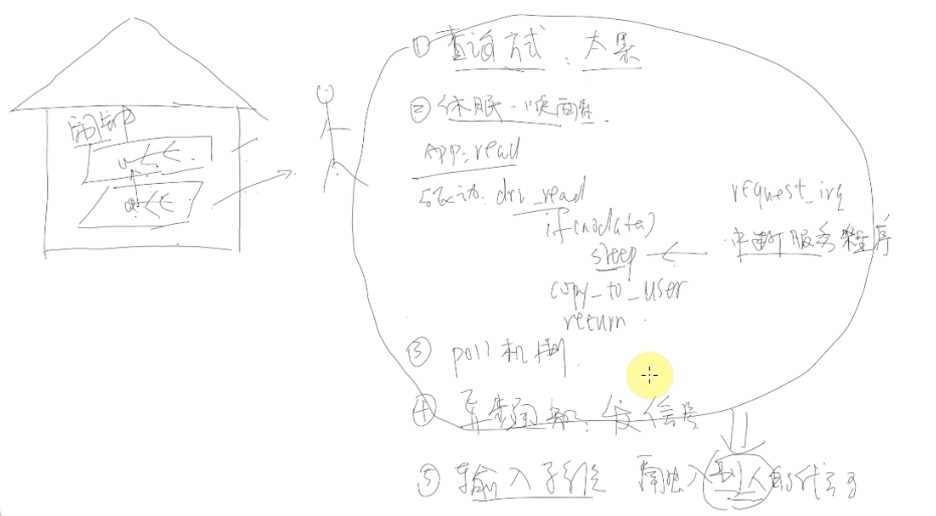 闹钟
① 查询方式: 太累
② 休眠-唤醒
APP: read
驱动: drv_read
if(nodata)
sleep
copy_to_user
return
request_irq
中断服务程序
③ poll机制
④ 异步通知: 发信号
⑤ 输入子系统 融入别人的代码